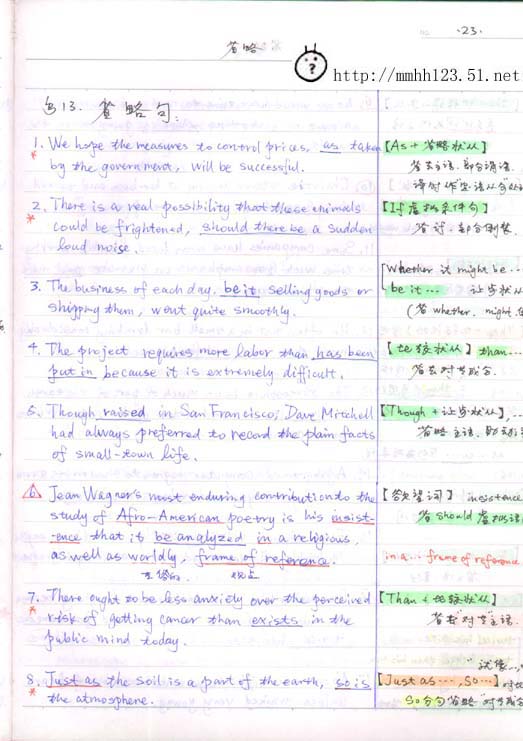 ·23·
省略
http://mmhh123.51.net
§13. 省略句:
1. We hope the measures to control prices, as taken
by the government, will be successful.
【As + 省略状从】
省去主语、部分谓语.
2. There is a real possibility that these animals
could be frightened, should there be a sudden
loud noise.
【If虚拟条件句】
省if、部分倒装.
3. The business of each day, be it selling goods or
shipping them, went quite smoothly.
Whether it might be...
be it... 让步状从
(省 whether, might,
4. The project requires more labor than has been
put in because it is extremely difficult.
【比较状从】than...
省去对等成分.
5. Though raised in San Francisco, Dave Mitchell
had always preferred to record the plain facts
of small-town life.
【Though + 让步状从】,...
省略主语、助动词
6. Jean Wagner's most enduring contribution to the
study of Afro-American poetry is his insist-
ence that it be analyzed in a religious,
as well as worldly, frame of reference.
世俗的
【欲望词】insistence
省 should 虚拟语
in a... frame of reference
7. There ought to be less anxiety over the perceived
risk of getting cancer than exists in the
public mind today.
【Than + 比较状从】
省去"对等"主语.
8. Just as the soil is a part of the earth, so is
the atmosphere.
【Just as..., So...】
So分句省略"对等成分